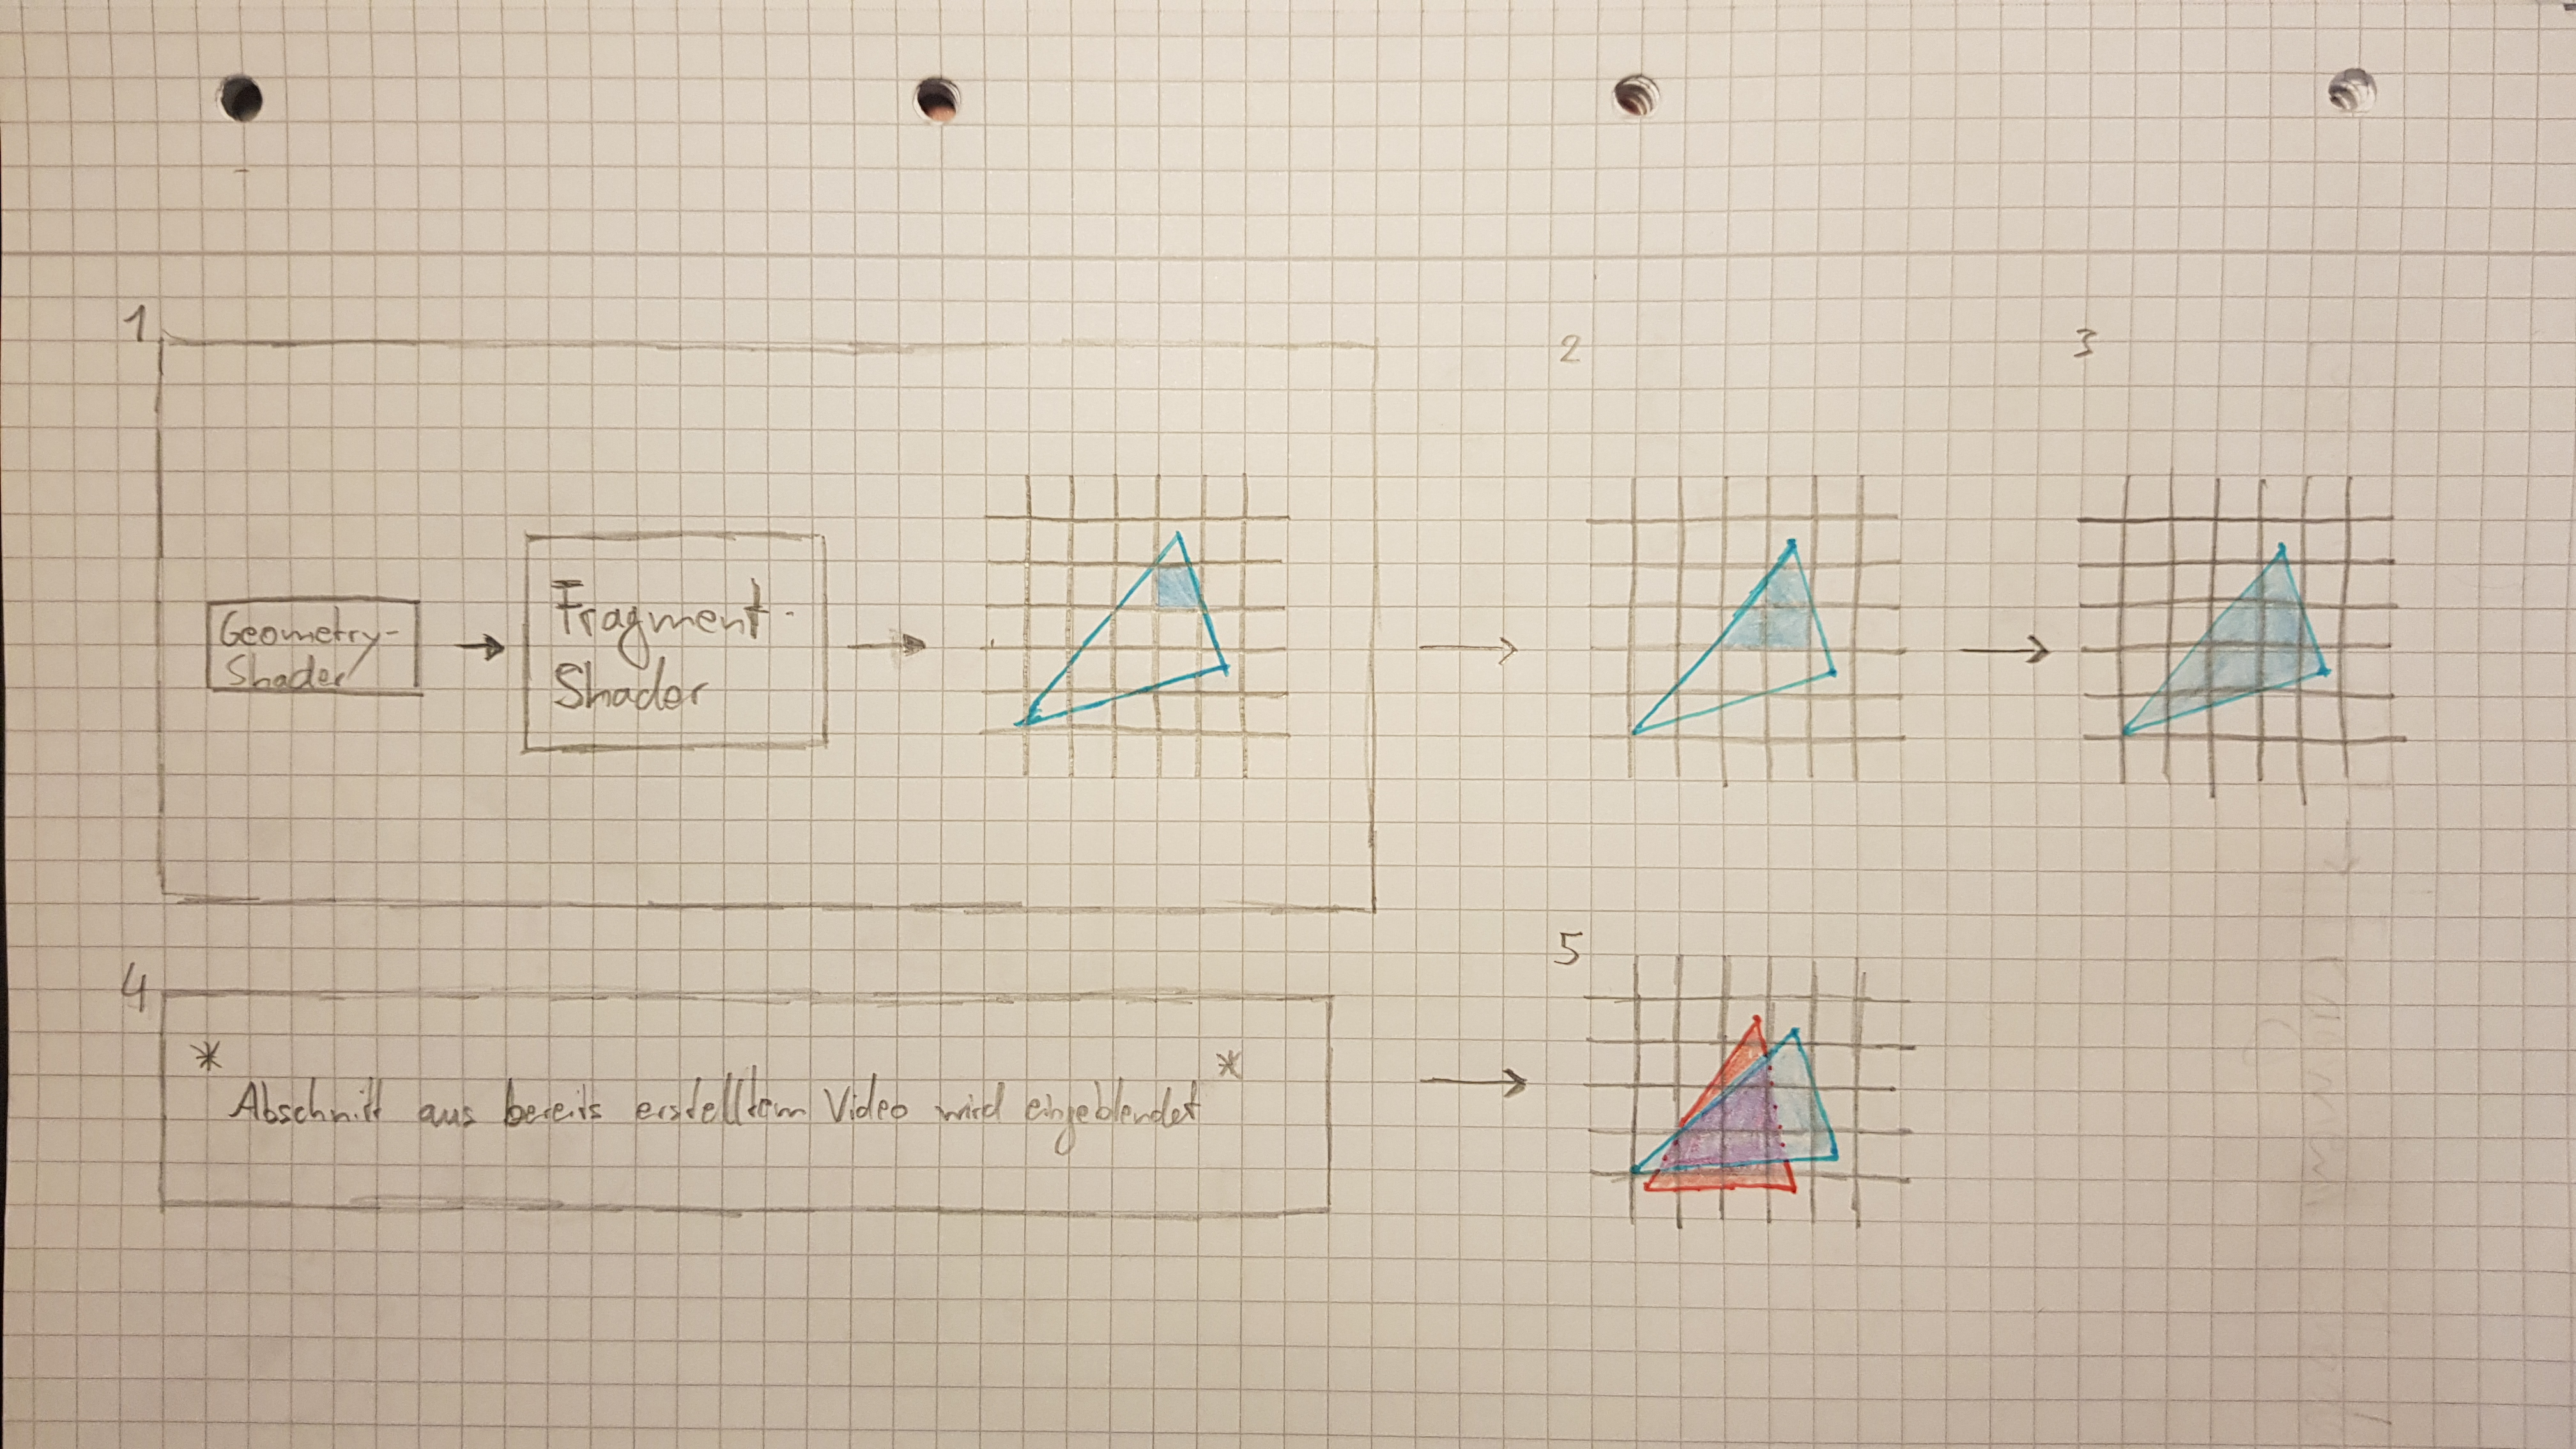 1
Geometry-
Shader
Fragment-
Shader
2
3
4
* Abschnitt aus bereits erstelltem Video wird eingeblendet *
5